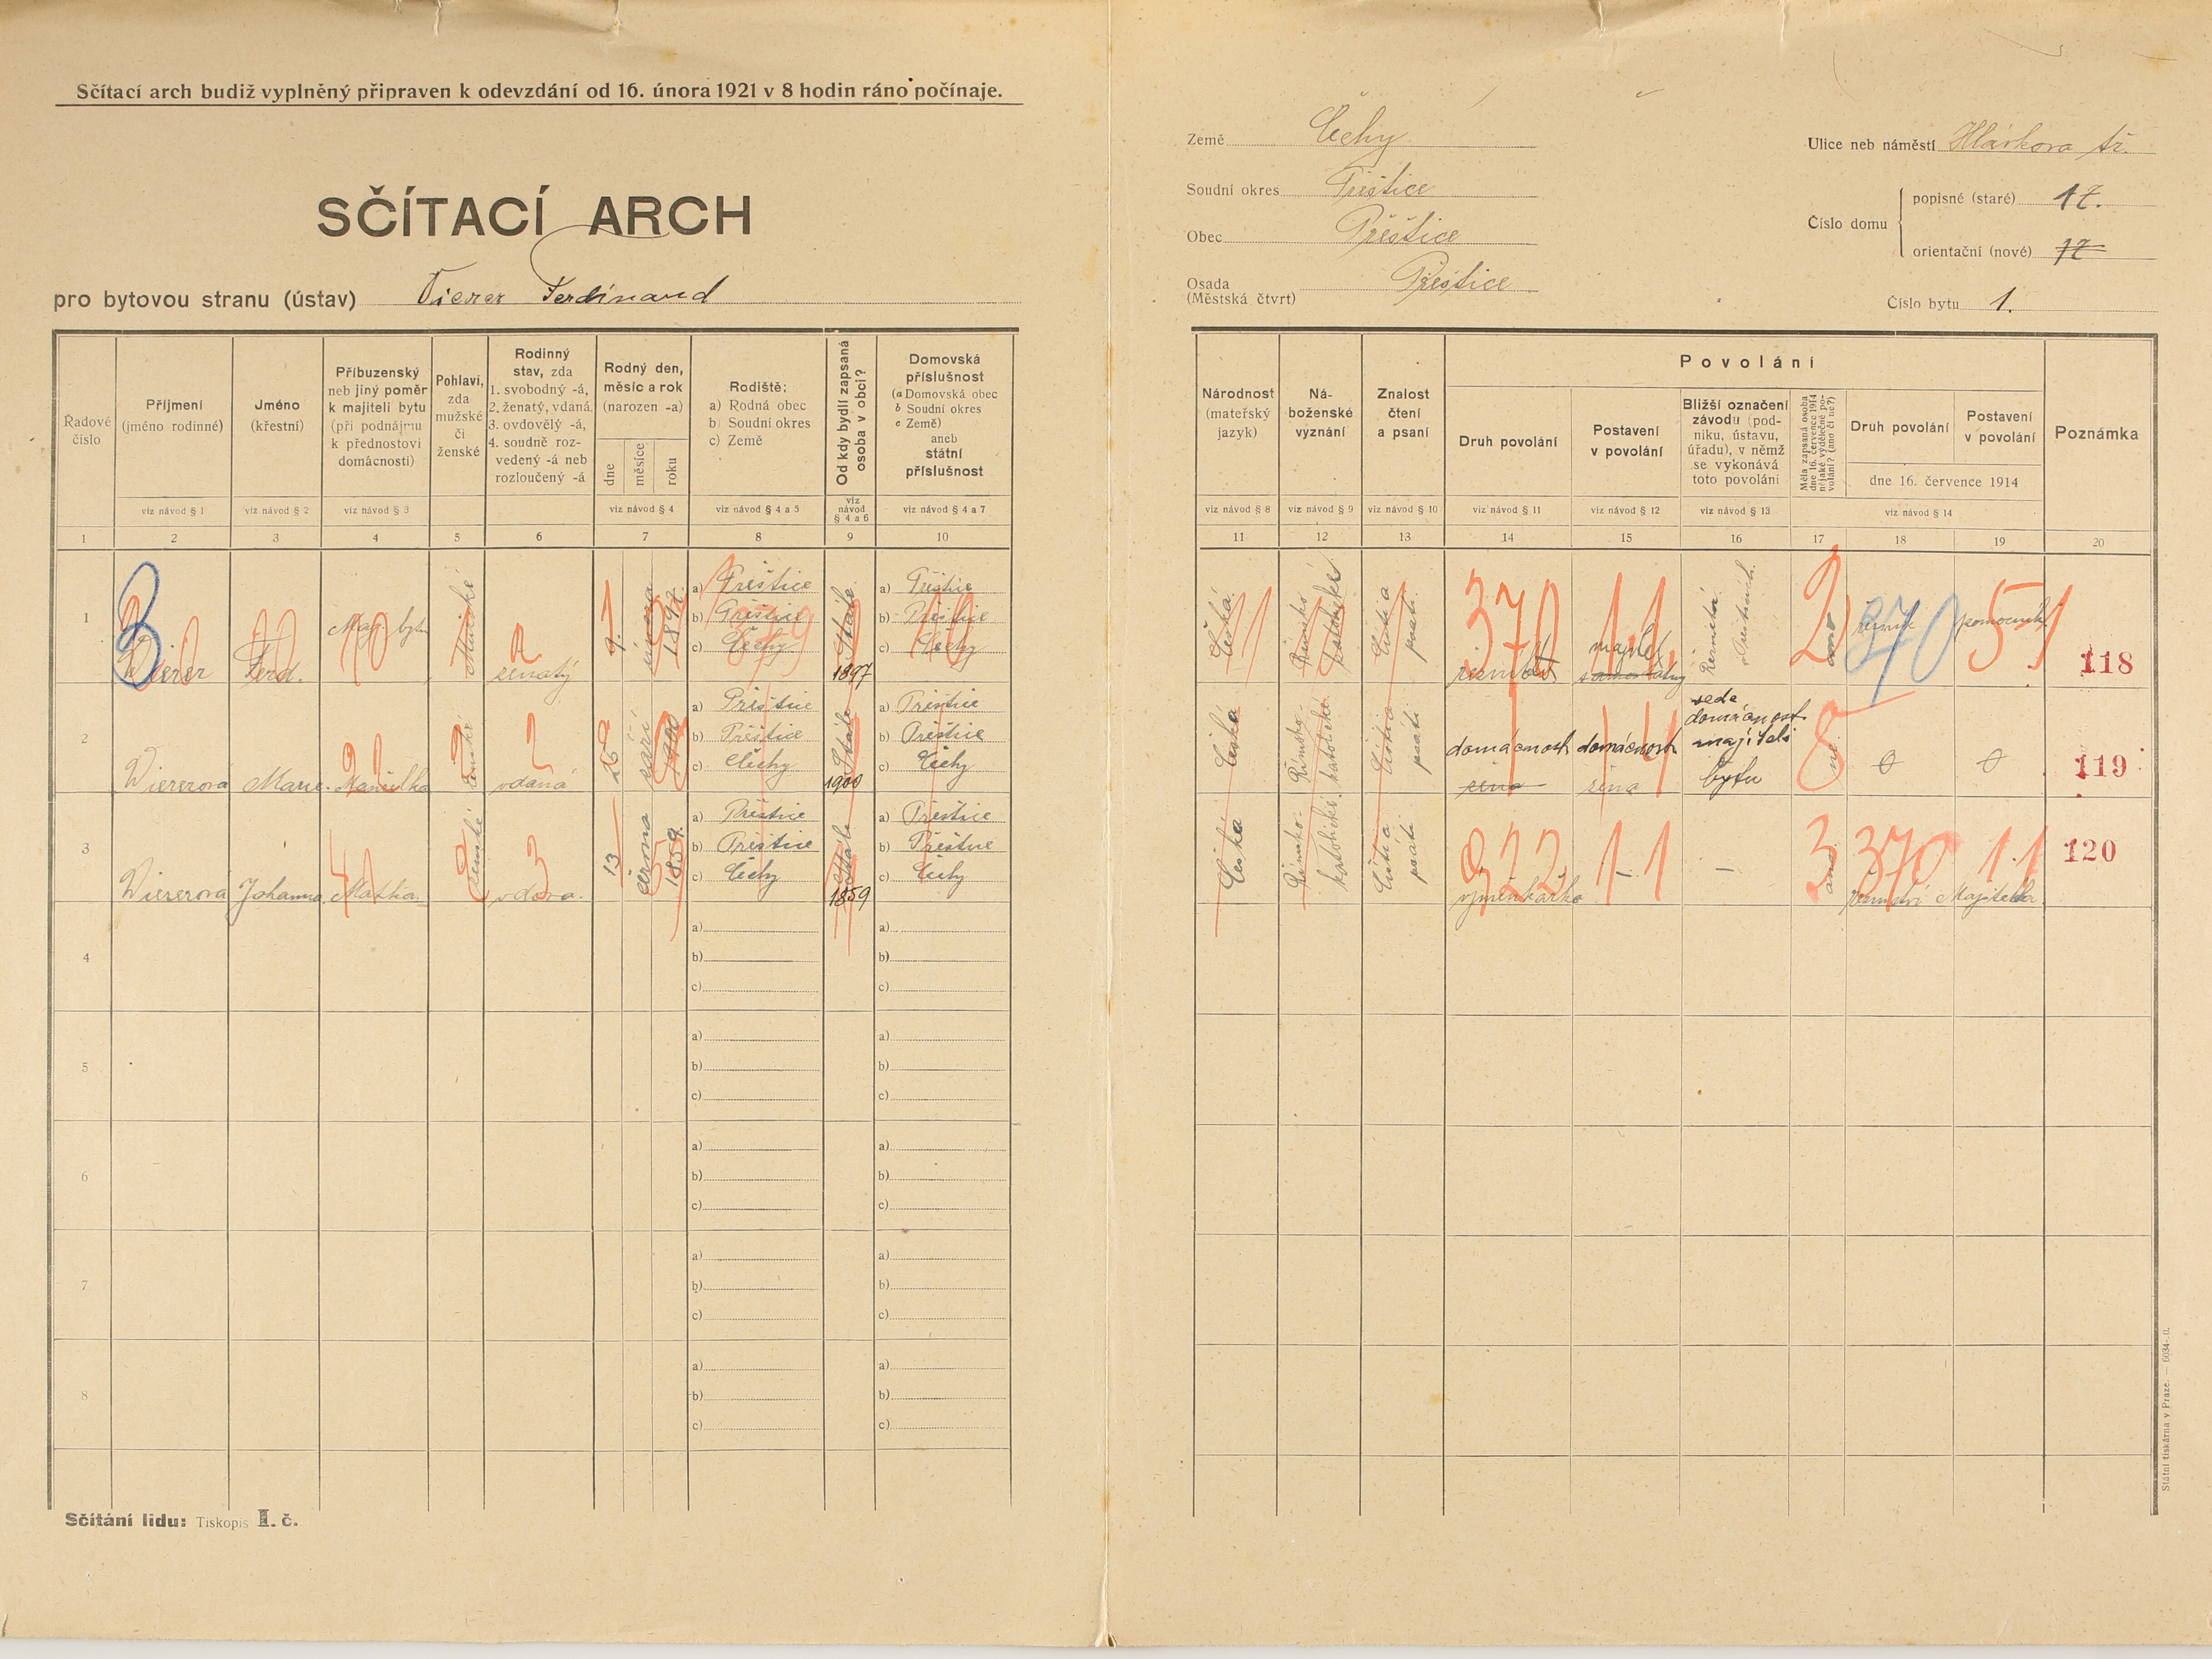 Sčítací arch budiž vyplněný připraven k odevzdání od 16. února 1921 v 8 hodin ráno počínaje.
SČÍTACÍ ARCH
pro bytovou stranu (ústav) Vierer Ferdinand
Země Čechy
Soudní okres Přeštice
Obec Přeštice
Osada (Městská čtvrt) Přeštice
Ulice neb náměstí Hlávkova tř.
Číslo domu
popisné (staré) 17.
orientační (nové) 17
Číslo bytu 1.
Řadové číslo
Příjmení (jméno rodinné)
Jméno (křestní)
Příbuzenský neb jiný poměr k majiteli bytu (při podnájmu k přednostovi domácnosti)
Pohlaví, zda mužské či ženské
Rodinný stav, zda 1. svobodný -á, 2. ženatý, vdaná 3. ovdovělý -á, 4. soudně rozvedený -á neb rozloučený -á
Rodný den, měsíc a rok (narozen -a)
dne měsíce roku
Rodiště: a) Rodná obec b) Soudní okres c) Země
Od kdy bydlí zapsaná osoba v obci?
Domovská příslušnost (a Domovská obec b Soudní okres c Země) aneb státní příslušnost
viz návod § 1 viz návod § 2 viz návod § 3 viz návod § 4 viz návod § 4 a 5 viz návod § 4 a 6 viz návod § 4 a 7
1 2 3 4 5 6 7 8 9 10
Národnost (mateřský jazyk)
Náboženské vyznání
Znalost čtení a psaní
Povolání
Druh povolání
Postavení v povolání
Bližší označení závodu (podniku, ústavu, úřadu), v němž se vykonává toto povolání
Měla zapsaná osoba dne 16. července 1914 nějaké výdělečné povolání? (ano či ne?)
Druh povolání
Postavení v povolání
dne 16. července 1914
Poznámka
viz návod § 8 viz návod § 9 viz návod § 10 viz návod § 11 viz návod § 12 viz návod § 13 viz návod § 14
11 12 13 14 15 16 17 18 19 20
1 Wierer Ferd. Maj. bytu Mužské ženatý 9. února 1897.
a) Přeštice
b) Přeštice
c) Čechy
Stále 1897
a) Přeštice
b) Přeštice
c) Čechy
Česká Římsko katolické Čísti a psáti.
370 majitel samostatný Řeznická 2 ano řezník 370 pomocník 51 118
2 Wiererová Marie. Manželka ženské vdaná 25 září 1900
a) Přeštice
b) Přeštice
c) Čechy
Stále 1900
a) Přeštice
b) Přeštice
c) Čechy
Česká Římsko-katolické Čísti a psáti
domácnost žena domácnost žena vede domácnost majiteli bytu 8 ne 0 0 119
3 Wiererová Johanna Matka. ženské vdova. 13 června 1859.
a) Přeštice
b) Přeštice
c) Čechy
Stále 1859
a) Přeštice
b) Přeštice
c) Čechy
Česká Římsko-katolické Čísti a psáti
922 výměnkářka 11 – 3 ano 370 řeznictví 1.1 Majitelka 120
4 a) b) c) a) b) c)
5 a) b) c) a) b) c)
6 a) b) c) a) b) c)
7 a) b) c) a) b) c)
8 a) b) c) a) b) c)
Sčítání lidu: Tiskopis I. č.
Státní tiskárna v Praze. — 6034-.0.